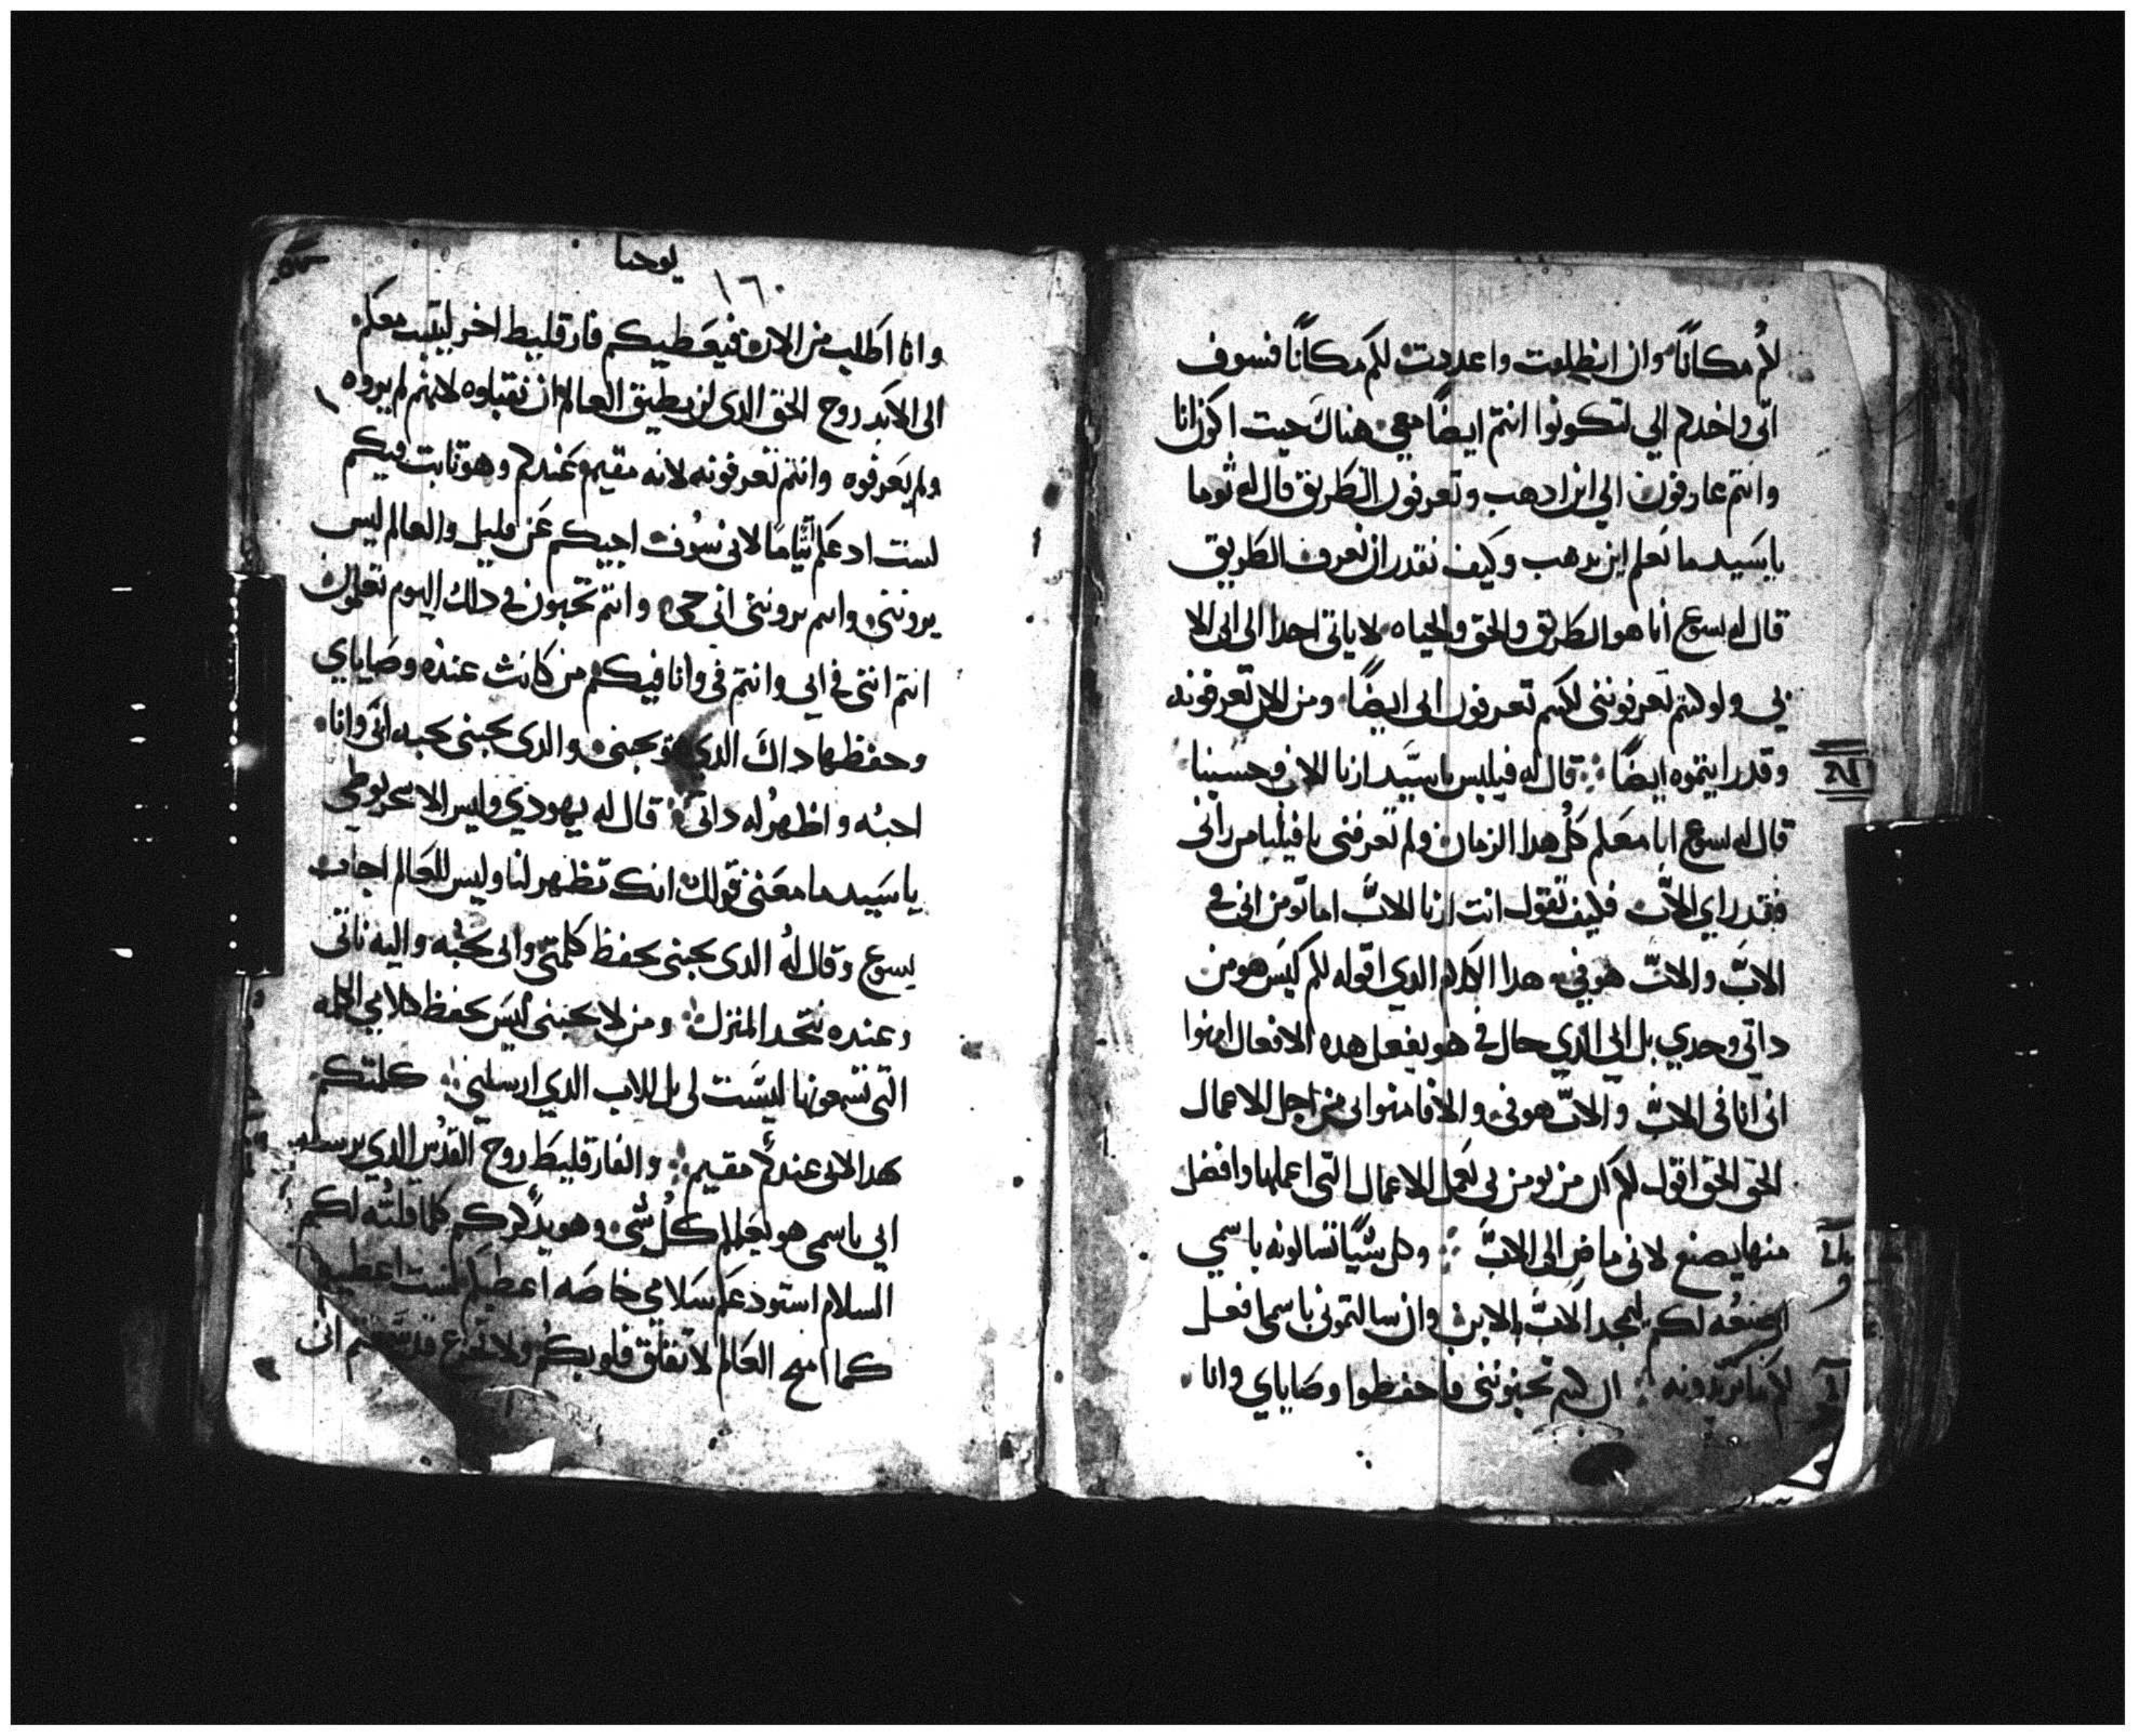 لكم مكاناً وان انطلقت واعددت لكم مكاناً فسوف
اتى واخدكم الي لتكونوا انتم ايضاً معي هناك حيت اكون انا
وانتم عارفون الي اين ادهب وتعرفون الطريق قال له توما
ياسيد ما نعلم اين تدهب وكيف نقدر ان نعرف الطريق
قال له يسوع أنا هو الطريق والحق والحياه لا ياتى احدا الى ابى الا
بي ولو كنتم تعرفوننى لكنتم تعرفون ابى ايضاً ومن الان تعرفونه
وقد رايتموه ايضاً قال له فيلبس ياسيد ارنا الاب وحسبنا
قال له يسوع انا معكم كل هدا الزمان ولم تعرفنى يا فيلبا من رانى
فقد راي الاب فكيف تقول انت ارنا الاب اما تومن انى فى
الاب والاب هو في هدا الكلام الدي اقوله لكم ليس هو من
داتي وحدي بل ابي الدي حال في هو يفعل هده الافعال امنوا
انى انا فى الاب والاب هو في والا فامنوا بى من اجل الاعمال
الحق الحق اقول لكم ان من يومن بى يعمل الاعمال التى اعملها وافضل
منها يصنع لانى ماض الى الاب وكل شيا تسالونه باسمي
اصنعه لكم ليمجد الاب بالابن وان سالتمونى باسمى افعل
لكم ما تريدونه ان كنتم تحبوننى فاحفظوا وصاياي وانا
يوحنا
١٦٠
وانا اطلب من الاب فيعطيكم فارقليط اخر ليثبت معكم
الى الابد روح الحق الدى لن يطيق العالم ان تقبلوه لانهم لم يروه
ولم يعرفوه وانتم تعرفونه لانه مقيم عندكم وهو تابت فيكم
لست ادعكم أيتاما لانى سوف اجيكم عن قليل والعالم ليس
يروننى وانتم تروننى انى حى وانتم تحيون في دلك اليوم تعلمون
انتم اننى في ابي وانتم في وانا فيكم من كانت عنده وصاياي
وحفظها داك الدي هو يحبنى والدى يحبنى يحبه ابى وانا
احبه واظهر له داتى قال له يهودي وليس الاسخريوطي
ياسيد ما معنى قولك انك تظهر لنا وليس للعالم اجاب
يسوع وقال له الدى يحبنى يحفظ كلمتى وابى يحبه واليه ناتى
وعنده نتخد المنزل ومن لا يحبنى ليس يحفظ كلامي الكلمه
التى تسمعونها ليست لى بل للاب الدي ارسلني كلمتكم
هدا لانى عندكم مقيم والفارقليط روح القدس الدي يرسله
ابي باسمى هو يعلمكم كل شى وهو يدكركم كلما قلته لكم
السلام استودعكم سلامي خاصه اعطيكم لست اعطيه
كما امنح العالم لا تقلق قلوبكم ولا تفزع قد سمعتم انى